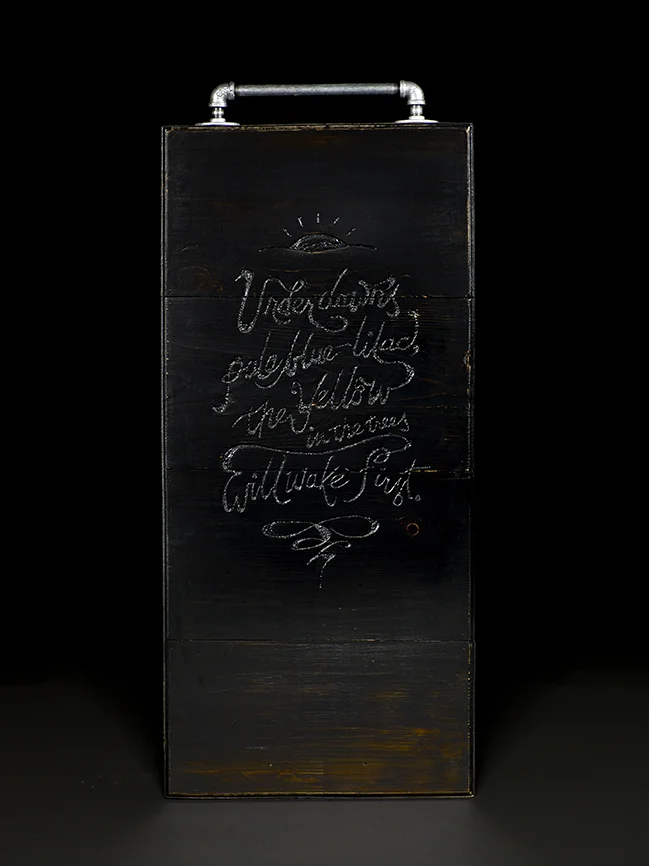 Under dawn's
pale blue-lilac,
the Yellow
in the trees
Will wake first.